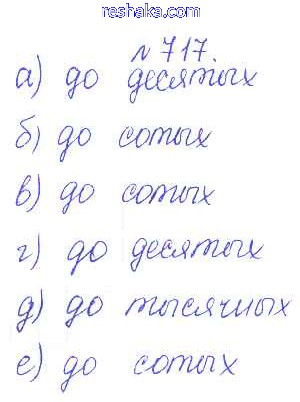 reshaka.com
№ 717.
а) до десятых
б) до сотых
в) до сотых
г) до десятых
д) до тысячных
е) до сотых